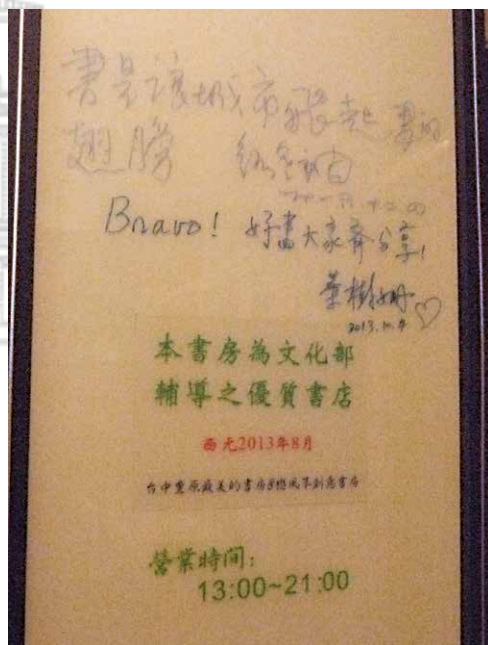 書是讓城市飛起來的
翅膀
Bravo! 好書大家齊分享!
葉樹姍
2013.10.4
本書房為文化部
輔導之優質書店
西元2013年8月
台中豐原最美的書房 戀風草創意書房
營業時間:
13:00~21:00